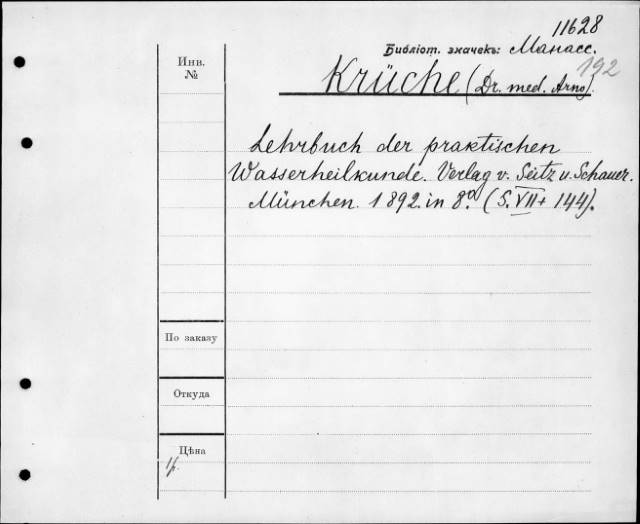 11628
Библіот. значекъ: Манасс.
192
Инв.
№
Krüche (Dr. med. Arno).
Lehrbuch der praktischen
Wasserheilkunde. Verlag v. Seitz u. Schauer.
München. 1892. in 8º. (S. VII + 144).
По заказу
Откуда
Цѣна
1р.